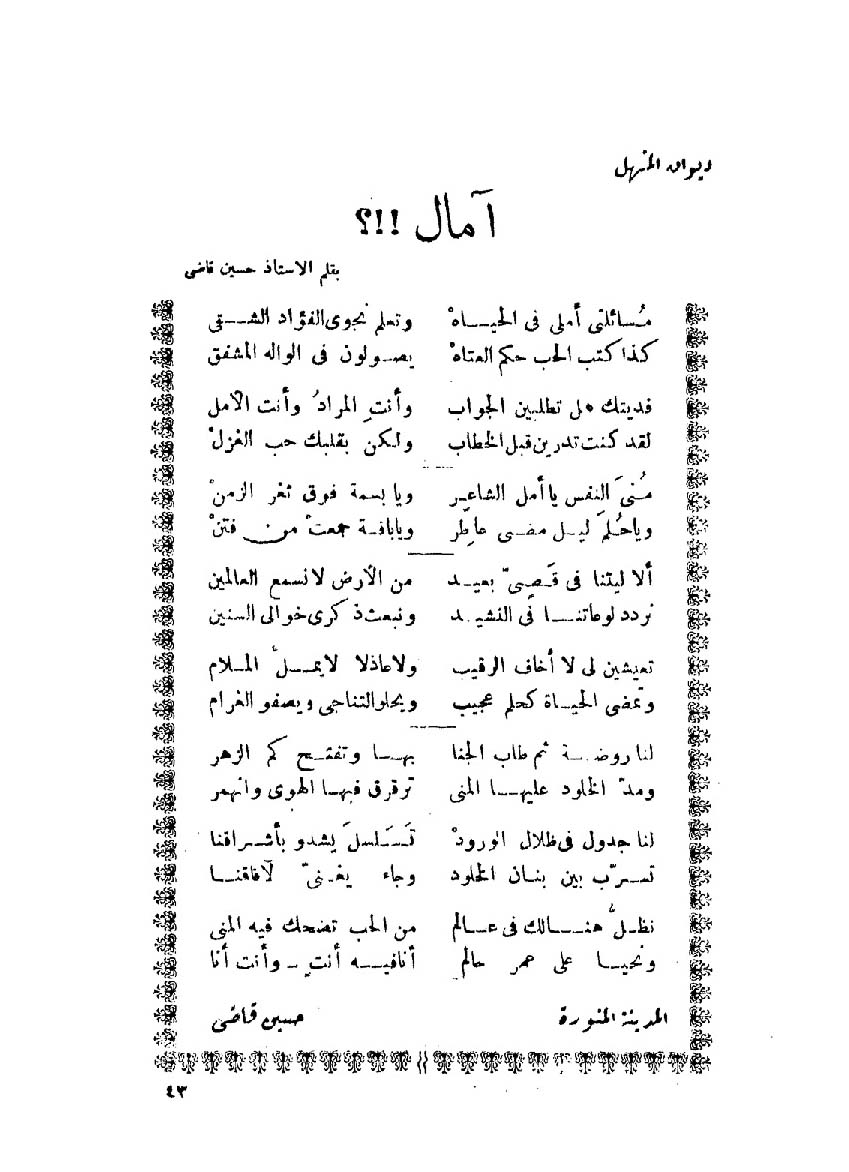 ديوان المنهل
آمال !!؟
بقلم الاستاذ حسين قاضى
مُسائلتى أملى فى الحيــاهْ وتعلم نجوى الفؤاد الشــقى
كذا كتب الحب حكم العتاهْ يصـولون فى الواله المشفق
فديتك هل تطلبين الجواب وأنتِ المرادُ وأنت الأمل
لقد كنت تدرين قبل الخطاب ولكن بقلبك حب الغزلْ
مُنىَ النفس يا أمل الشاعِـر ويا بسمة فوق ثغر الزمنْ
وياحُلمَ ليـل مضـى عاطِر وياباقـة جمعتْ من فتنْ
ألا ليتنا فى قَـصِىّ بعيـد من الأرض لا نسمع العالمين
نردد لوعاتنــا فى النشيـد ونبعث ذكرى خوالى السنين
تعيشين لى لا أخاف الرقيب ولا عاذلا لا يمــلّ المـلام
وتمضى الحيـاة كحلم عجيب ويحلو التناجى ويصفو الغرام
لنا روضـة ثم طاب الجنا بهـا وتفتـح كم الزهر
ومدّ الخلود عليهـا المنى ترقرق فيهـا الهوى وانهمر
لنا جدول فى ظلال الورودْ تَسَلسلَ يشدو بأشـراقنا
تسـرّب بين بنـان الخلود وجاء يغـنىّ لآفاقنـا
نظـلُّ هنــالك فى عـالم من الحب تضحك فيه المنى
ونحيـا على عمر حالم أنا فيـه أنتِ ـ وأنت أنا
المدينة المنورة حسين قاضى
٤٣